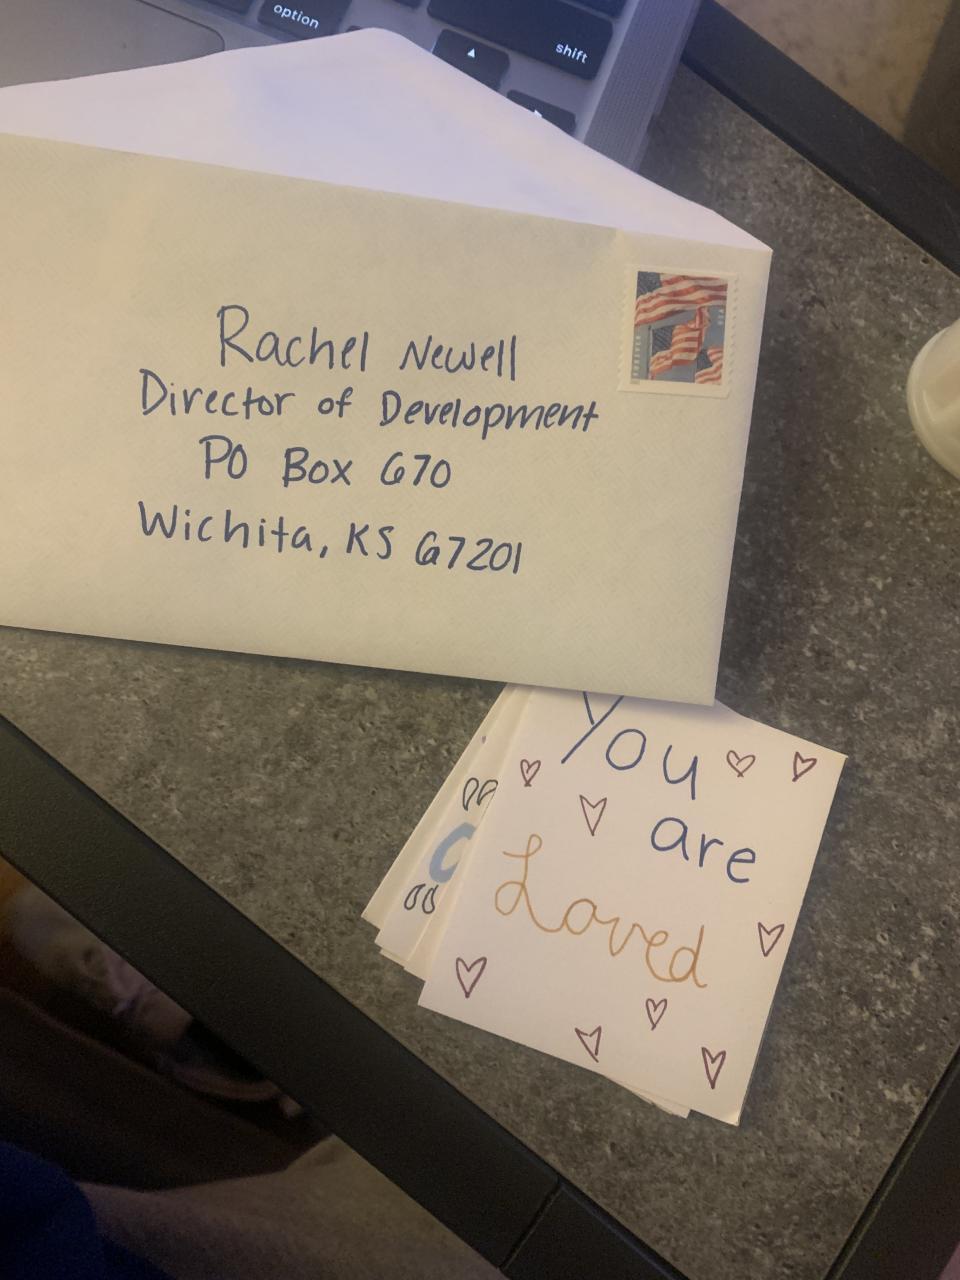 option
shift
FOREVER USA
Rachel Newell
Director of Development
PO Box 670
Wichita, KS 67201
You
are
Loved